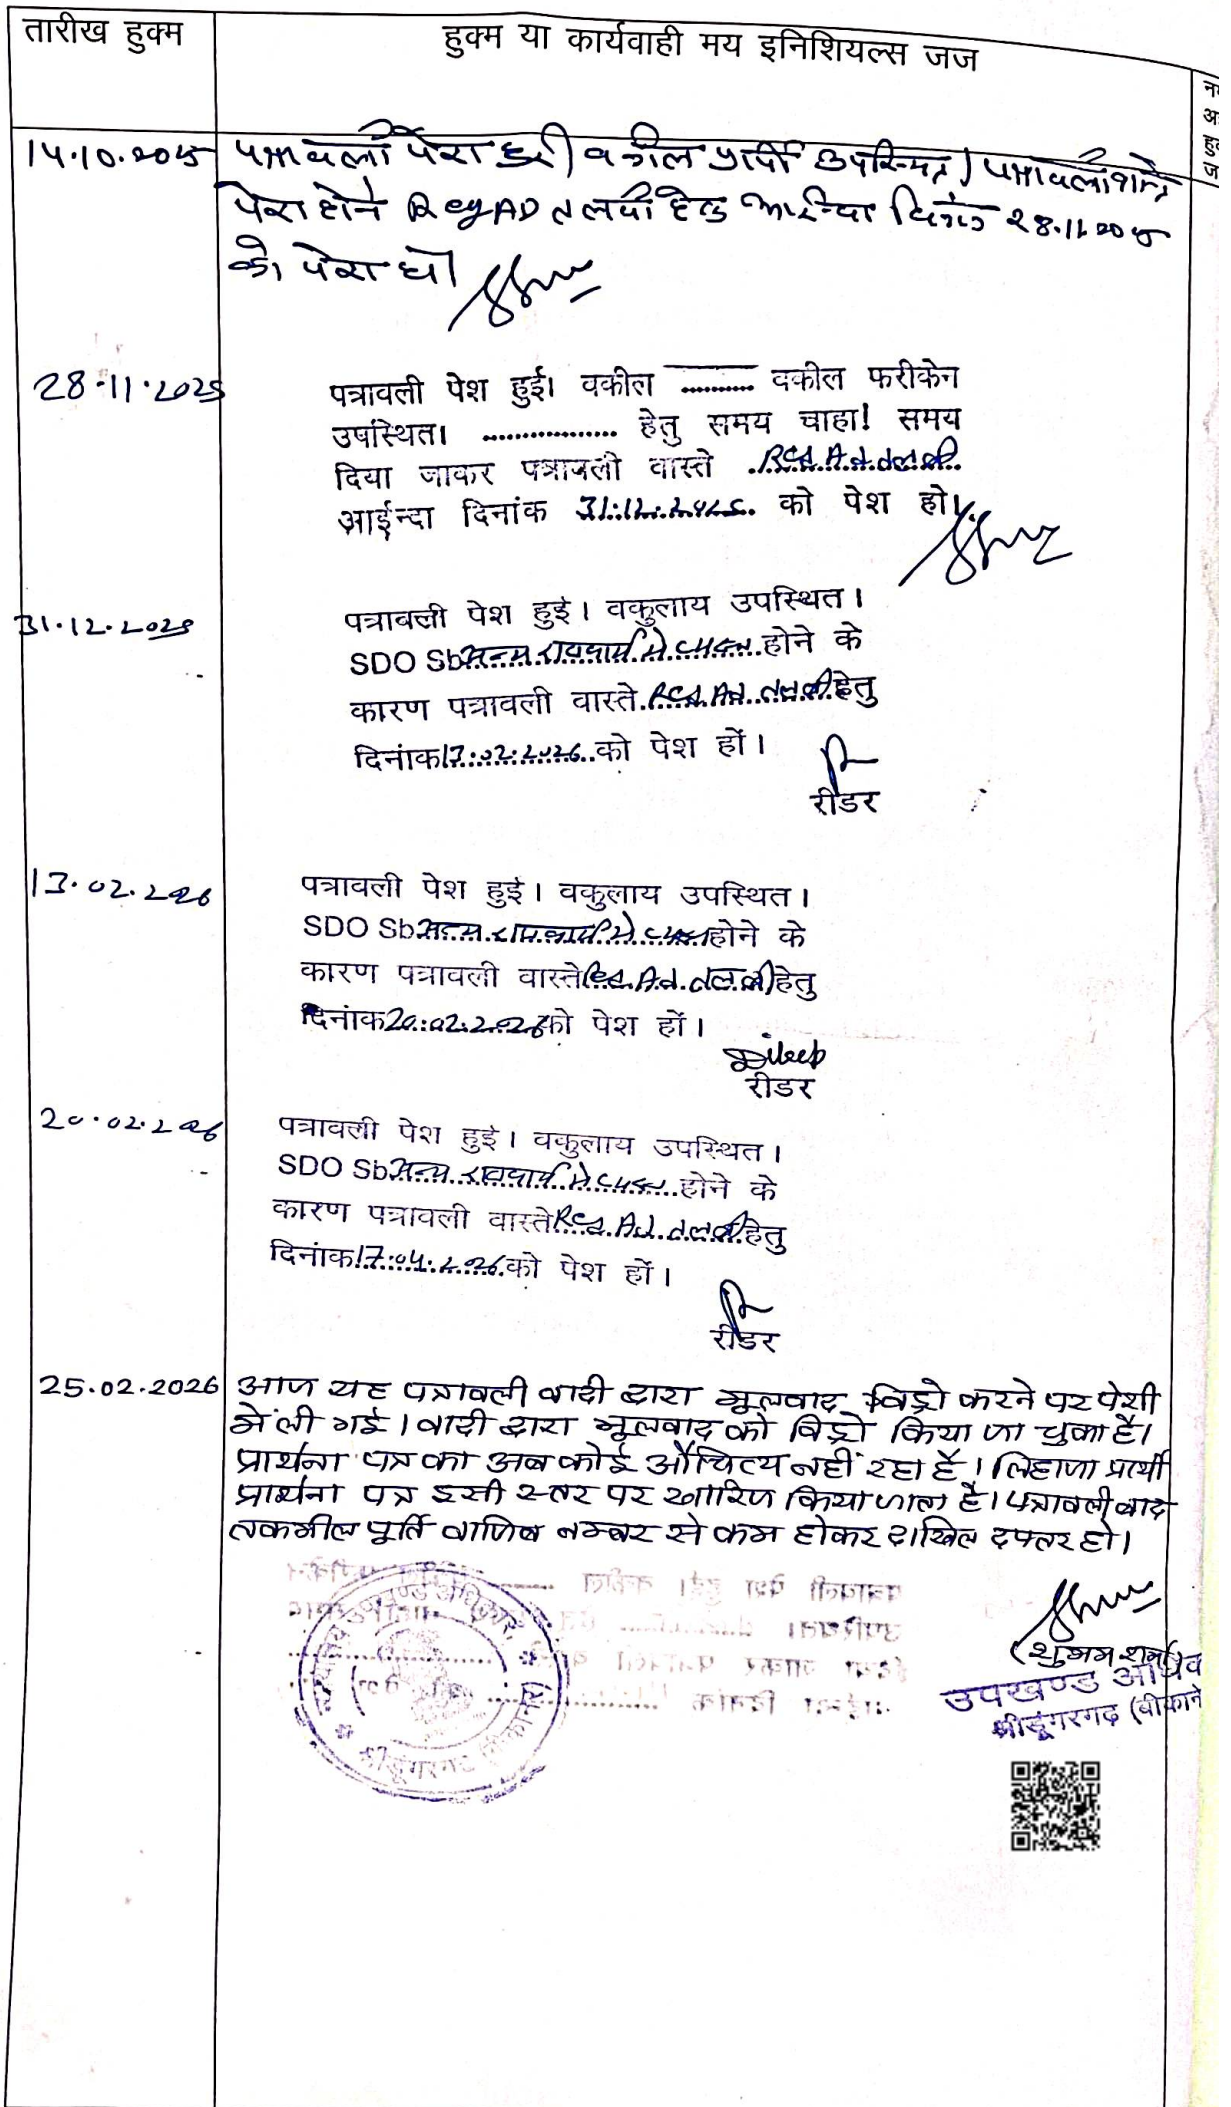 तारीख हुक्म
हुक्म या कार्यवाही मय इनिशियल्स जज
14.10.2025
पत्रावली पेश हुई। वकील प्रार्थी उपस्थित। पत्रावली
पेश होने Reg AD तलबी हेतु आईन्दा दिनांक 28.11.2025
को पेश हो।
28.11.2025
पत्रावली पेश हुई। वकील .......... वकील फरीकेन
उपस्थित। .................. हेतु समय चाहा! समय
दिया जाकर पत्रावली वास्ते Reg. A.d. तलबी
आईन्दा दिनांक 31.12.2025 को पेश हो।
31.12.2025
पत्रावली पेश हुई। वकुलाय उपस्थित।
SDO Sb अन्य राजकार्य में व्यस्त होने के
कारण पत्रावली वास्ते Reg. Ad. तलबी हेतु
दिनांक 17.02.2026 को पेश हों।
रीडर
17.02.2026
पत्रावली पेश हुई। वकुलाय उपस्थित।
SDO Sb अन्य राजकार्य में व्यस्त होने के
कारण पत्रावली वास्ते Reg. A.d. तलबी हेतु
दिनांक 20.02.2026 को पेश हों।
रीडर
20.02.2026
पत्रावली पेश हुई। वकुलाय उपस्थित।
SDO Sb अन्य राजकार्य में व्यस्त होने के
कारण पत्रावली वास्ते Reg. Ad. तलबी हेतु
दिनांक 17.04.2026 को पेश हों।
रीडर
25.02.2026
आज यह पत्रावली वादी द्वारा मूलवाद विड्रो करने पर पेशी
में ली गई। वादी द्वारा मूलवाद को विड्रो किया जा चुका है।
प्रार्थना पत्र का अब कोई औचित्य नहीं रहा है। लिहाजा प्रार्थी
प्रार्थना पत्र इसी स्तर पर खारिज किया जाता है। पत्रावली बाद
तकमील पूर्ति वाजिब नम्बर से कम होकर दाखिल दफ्तर हो।
(शुभम शर्मा)
उपखण्ड
श्रीडूंगरगढ़ (बीकाने